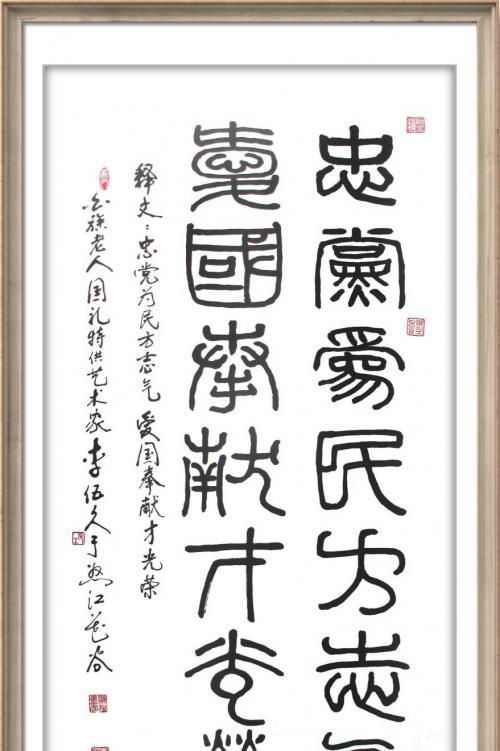 忠黨爲民方志气
愛國奉獻才光榮
释文：忠党为民方志气 爱国奉献才光荣
白族老人国礼特供艺术家李伍久于怒江花谷